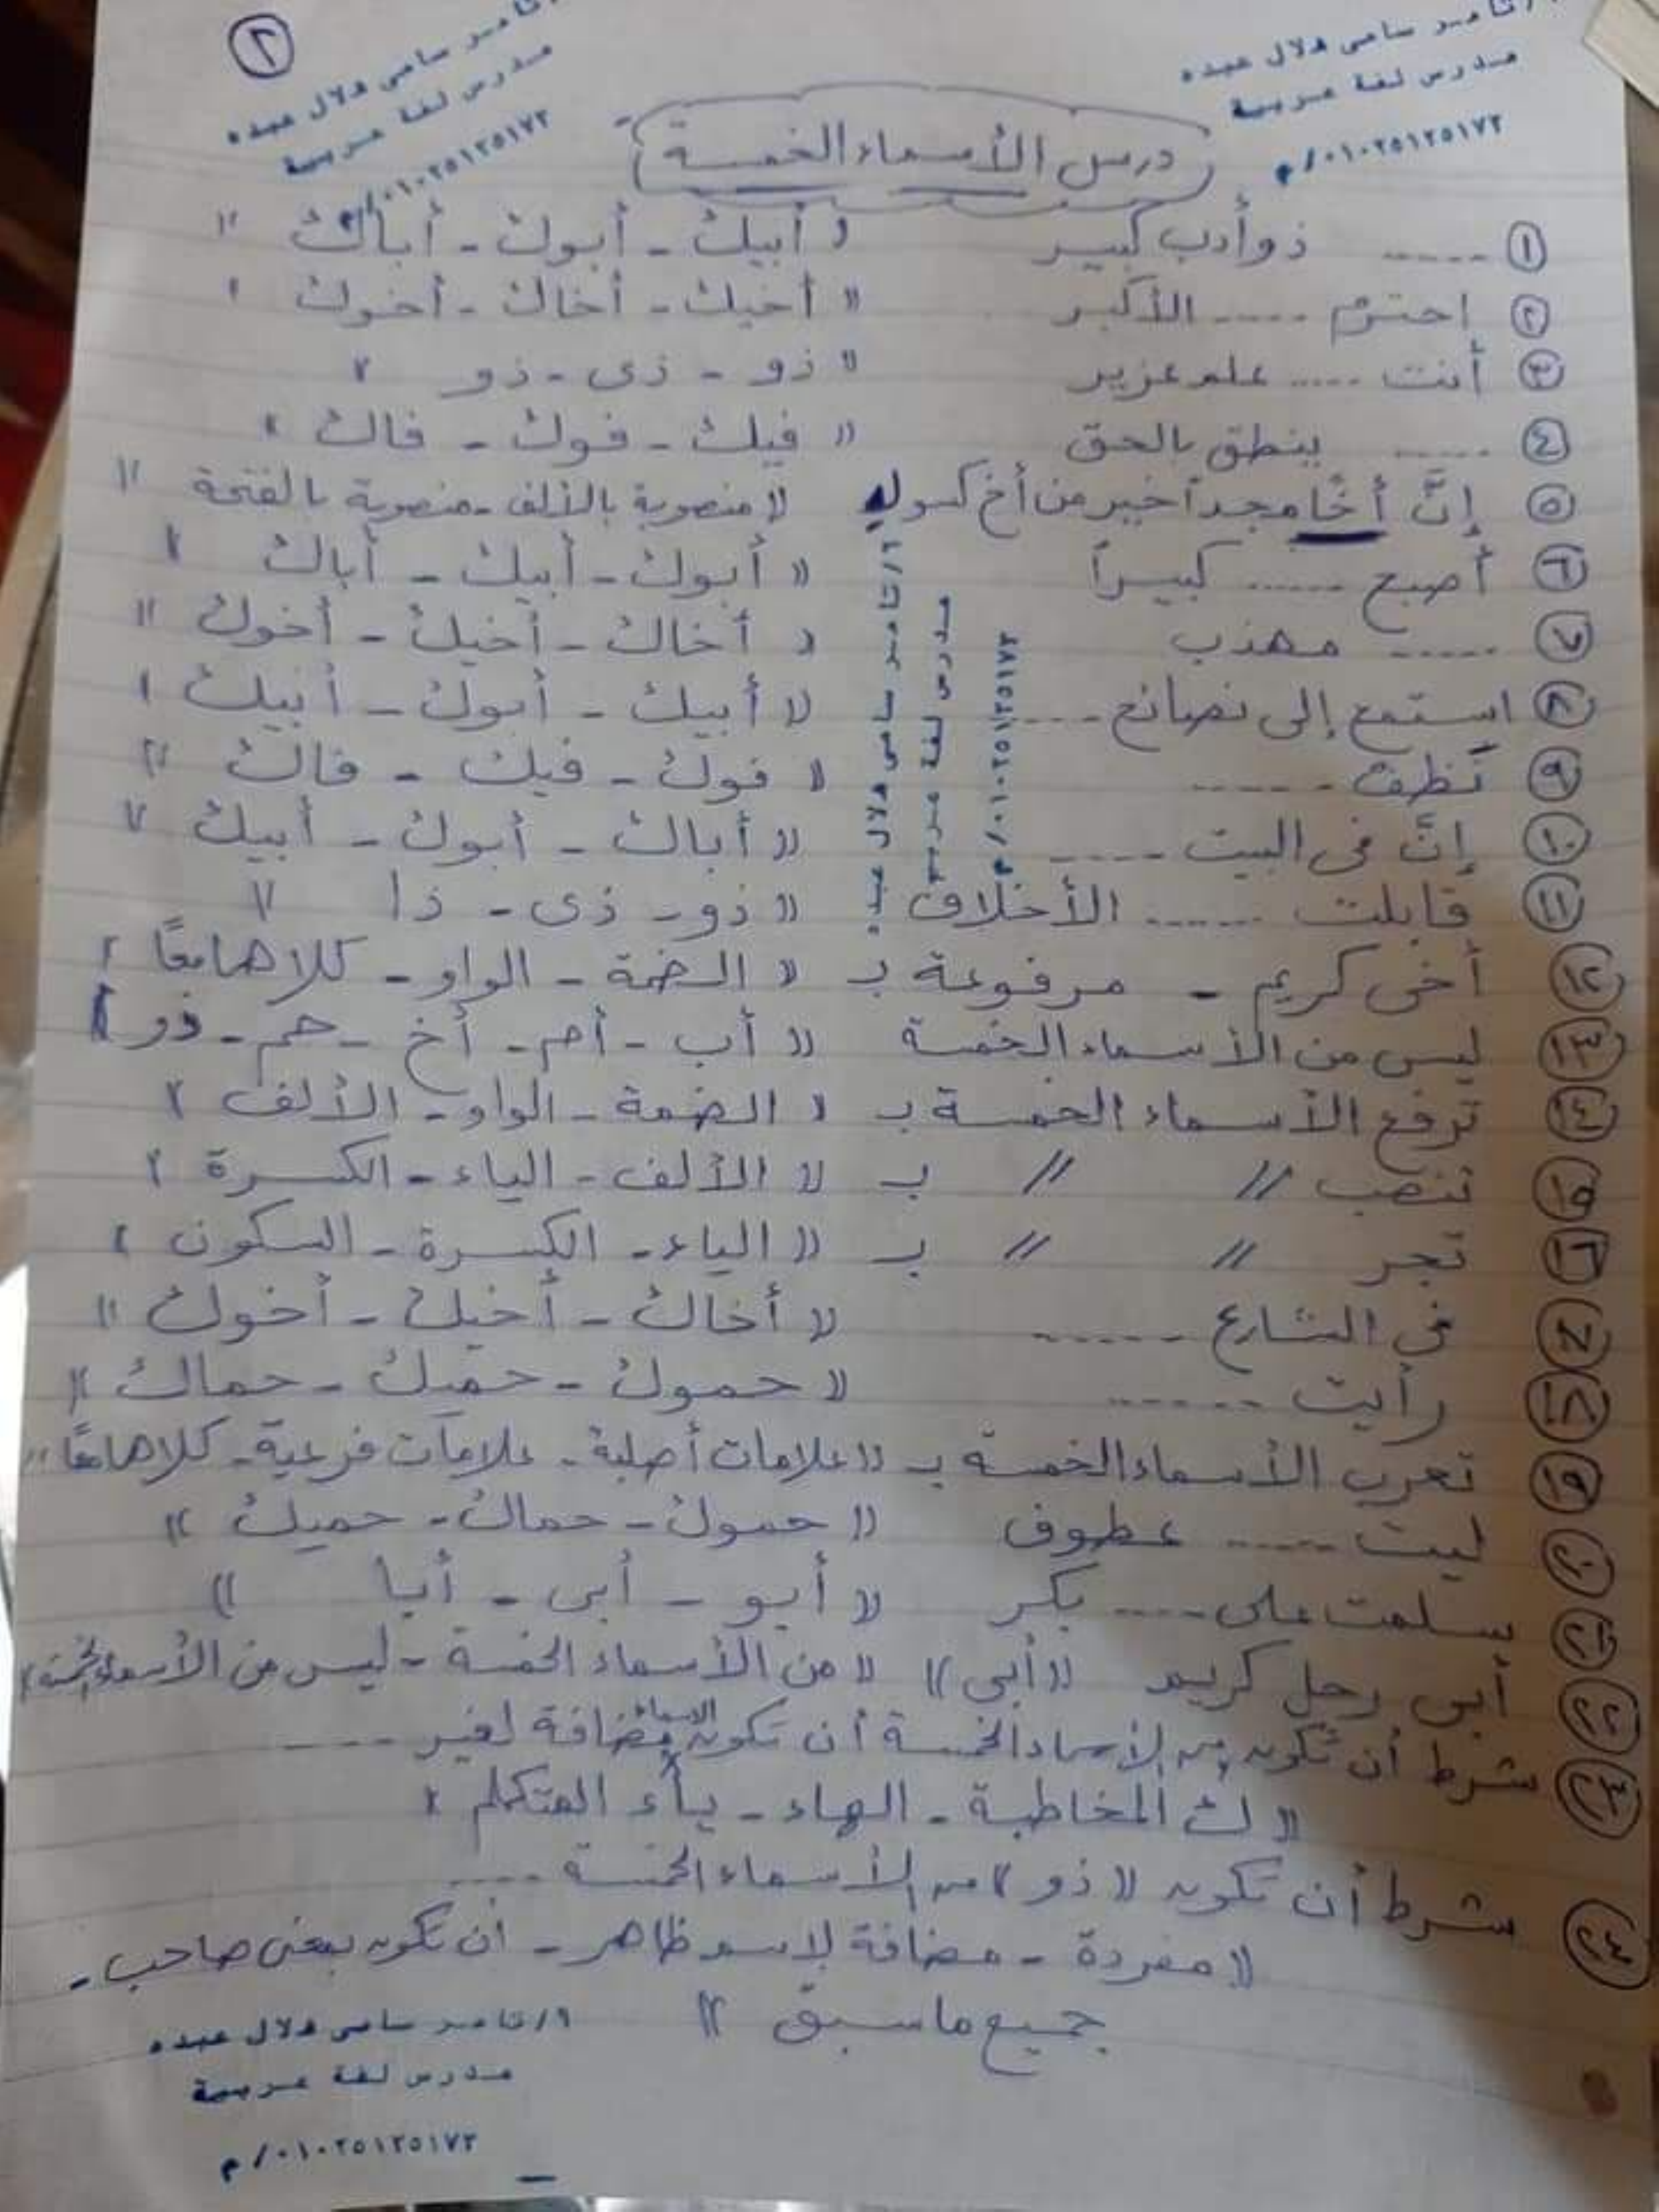 ٢
تامر سامى هلال عبده
مدرس لغة عربية
٠١٠٢٥١٢٥١٧٣/م
تامر سامى هلال عبده
مدرس لغة عربية
٠١٠٢٥١٢٥١٧٣/م
درس الأسماء الخمسة
١ ...... ذو أدب كبير « أبيك - أبوك - أباك »
٢ احترم ..... الأكبر « أخيك - أخاك - أخوك »
٣ أنت ..... علم غزير « ذو - ذى - ذو »
٤ ...... ينطق بالحق « فيك - فوك - فاك »
٥ إنَّ أخًا مجداً خير من أخ كسول « منصوبة بالألف - منصوبة بالفتحة »
٦ أصبح ...... كبيراً « أبوك - أبيك - أباك »
٧ ...... مهذب « أخاك - أخيك - أخوك »
٨ استمع إلى نصائح ..... « أبيك - أبوك - أبيك »
٩ نظف ...... « فوك - فيك - فاك »
١٠ إنَّ فى البيت ..... « أباك - أبوك - أبيك »
١١ قابلت ...... الأخلاق « ذو - ذى - ذا »
١٢ أخى كريم - مرفوعة بـ « الضمة - الواو - كلاهما معًا »
١٣ ليس من الأسماء الخمسة « أب - أم - أخ - حم - ذو »
١٤ ترفع الأسماء الخمسة بـ « الضمة - الواو - الألف »
١٥ تنصب // // بـ « الألف - الياء - الكسرة »
١٦ تجر // // بـ « الياء - الكسرة - السكون »
١٧ فى الشارع ...... « أخاك - أخيك - أخوك »
١٨ رأيت ...... « حموك - حميك - حماك »
١٩ تعرب الأسماء الخمسة بـ « علامات أصلية - علامات فرعية - كلاهما معًا »
٢٠ ليت ...... عطوف « حموك - حماك - حميك »
٢١ سلمت على ..... بكر « أبو - أبى - أبا »
٢٢ أبى رجل كريم « أبى » « من الأسماء الخمسة - ليس من الأسماء الخمسة »
٢٣ شرط أن تكون من الأسماء الخمسة أن تكون الأسماء مضافة لغير ....
« ك المخاطبة - الهاء - ياء المتكلم »
شرط أن تكون « ذو » من الأسماء الخمسة ....
« مفردة - مضافة لاسم ظاهر - أن تكون بمعنى صاحب -
جميع ما سبق »
أ/تامر سامى هلال عبده
مدرس لغة عربية
٠١٠٢٥١٢٥١٧٣/م
أ/تامر سامى هلال عبده
مدرس لغة عربية
٠١٠٢٥١٢٥١٧٣/م